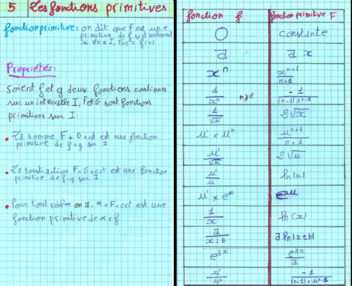 5 Les fonctions primitives
fonction primitive: on dit que F est une
primitive de f si et seulement
si ∀x ∈ I, F'(x) = f(x)
Propriétés:
Soient f et g deux fonctions continues
sur un intervalle I, F et G sont fonctions
primitives sur I:
• La somme F + G est une fonction
primitive de f+g sur I
• F - G est une fonction
primitive de f-g sur I
• Pour tout réel α on I, α × F est une
fonction primitive de α × f
fonction f | fonction primitive F
0 | constante
a | a x
xⁿ | xⁿ⁺¹/n+1
1/xⁿ n≠1 | -1/(n-1)xⁿ⁻¹
1/√x | 2√x
u' × uⁿ | uⁿ⁺¹/n+1
u'/√u | 2√u
u'/u | ln|u|
u' × eᵘ | eᵘ
1/x | ln(x)
1/x±b | a ln|x±b|
eᵃˣ | eᵃˣ/a
u'/uⁿ | -1/(n-1)×uⁿ⁻¹